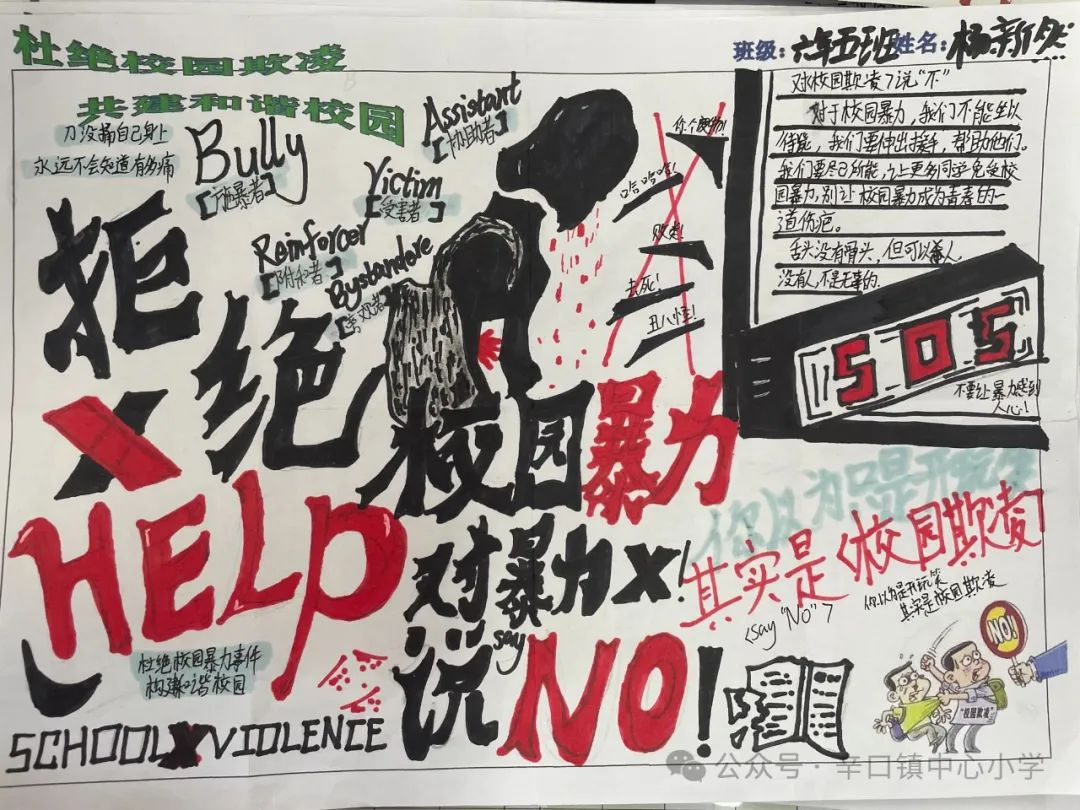 杜绝校园欺凌
共建和谐校园
班级:六年五班姓名:杨新然
刀没捅自己身上
永远不会知道有多痛
Bully
[施暴者]
Assistant
[协助者]
Victim
[受害者]
Reinforcer
[附和者]
Bystandere
[旁观者]
你个废物!
哈哈哈!
败类!
去死!
丑八怪!
对校园欺凌7说“不”
对于校园暴力,我们不能坐以
待毙,我们要伸出援手,帮助他们。
我们要尽己所能,让更多同学免受校
园暴力,别让校园暴力成为青春的一
道伤疤。
舌头没有骨头,但可以
没有人,不是无辜的.
SOS
不要让暴力
人心!
拒绝
校园暴力
X
HELP
对暴力X!
say
说NO!
你以为只是开玩笑
其实是<校园欺凌
<say“NO”7
你以为是开玩笑
其实是校园欺凌
杜绝校园暴力事件
构建和谐校园
SCHOOL X VIOLENCE
NO!
“校园欺凌”
公众号·辛口镇中心小学